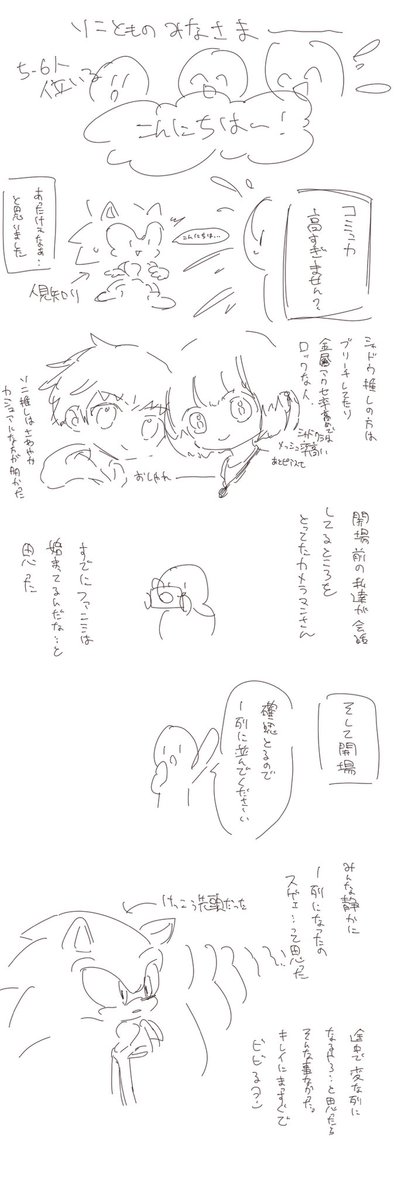 ソニとものみなさま
5~6人
位いる
こんにちはー!
コミュカ
高すぎません?
こんにちは…
あったけぇなぁ…
と思いました
人見知り
シャドウ推しの方は
ブリーチしてたり
金属アクセ率高めでは
ロックな人、
メッシュ率高い
あとピアスも
おしゃれ
ソニ推しはさわやか
カジュアルな方が多かった
開場前の私達が会話
してるところを
とってたカメラマンさん
すでにファンミは
始まってるんだな…と
思った
そして開場
確認とるので
1列に並んでください
みんな静かに
1列になったの
スゲェ…って思った
けっこう先頭だった
途中で変な列に
なるやろ…と思たら
そんな事なかった。
キレイにまっすぐで
ビビる